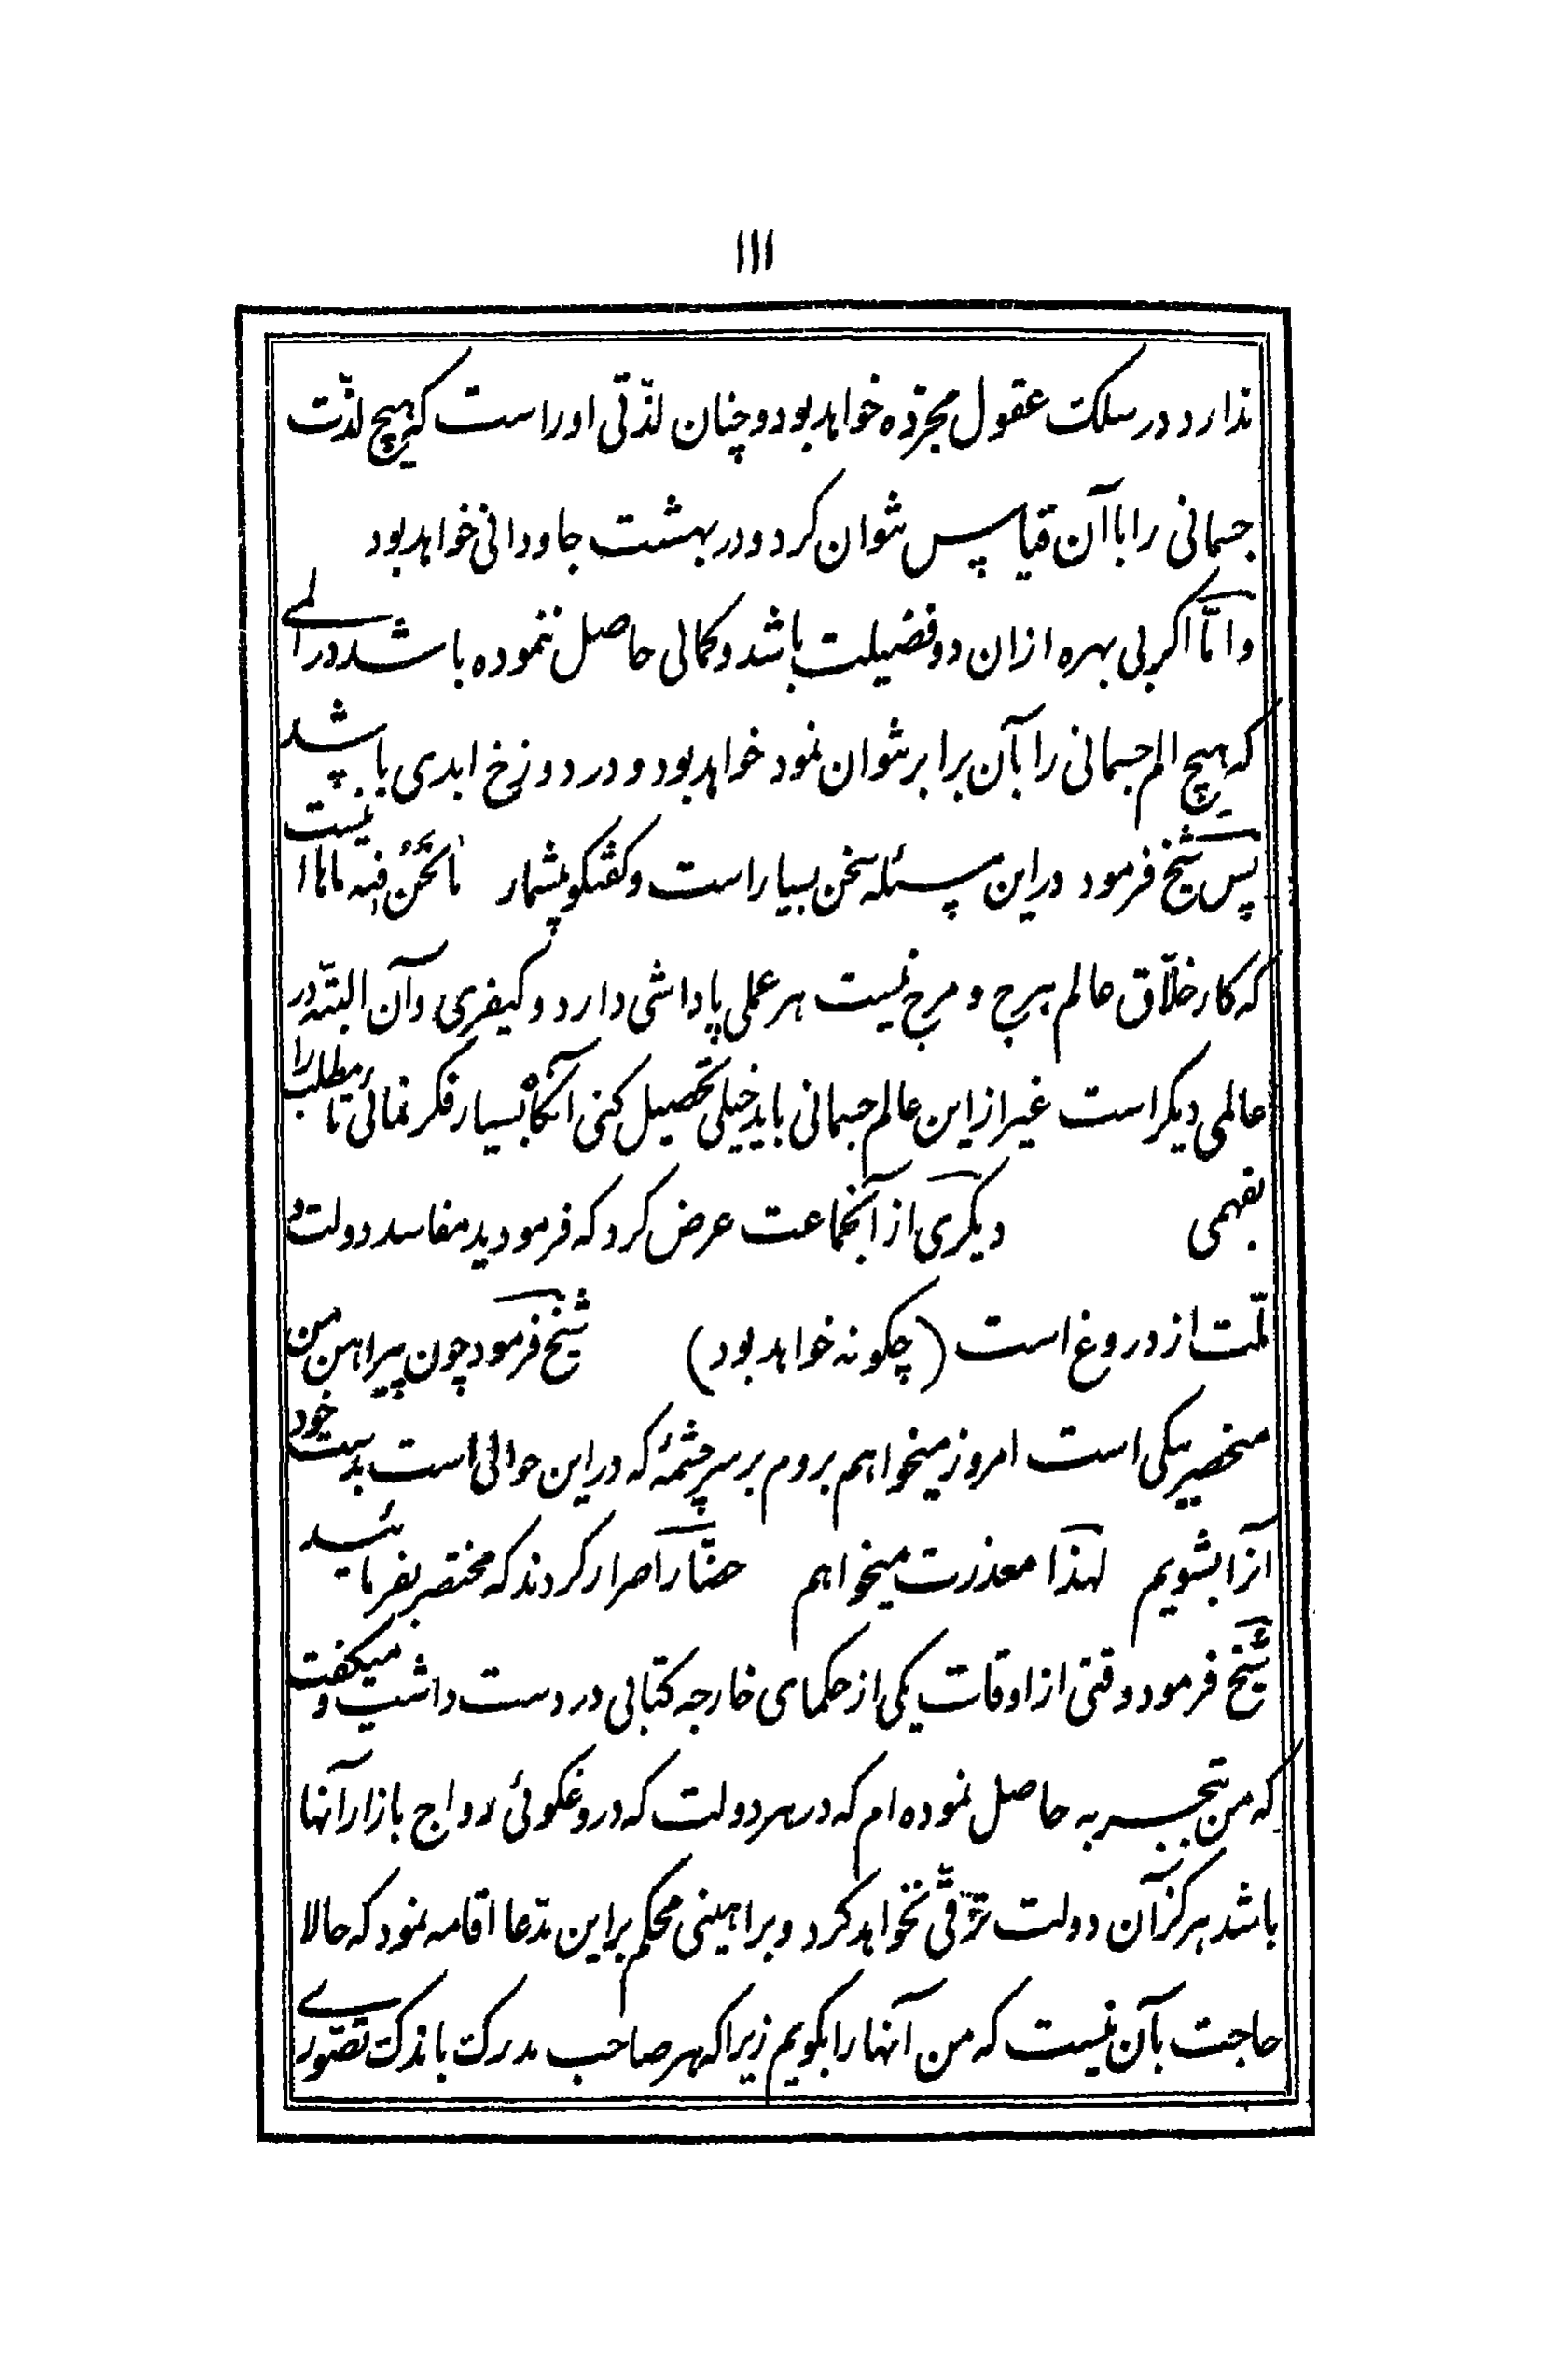 ۱۱۱
ندارد در سلک عقول مجرّده خواهد بود و چنان لذّتی او را است که هیچ لذّت
جسمانی را با آن قیاس نتوان کرد و در بهشت جاودانی خواهد بود
و امّا اگر بی بهره ازان دو فضیلت باشد و کمالی حاصل ننموده باشد در المے
که هیچ الم جسمانی را بآن برابر نتوان نمود خواهد بود و در دوزخ ابدی باشد
پس شیخ فرمود در این مسئله سخن بسیار است و کفتکو بیشمار ما نَحْنُ فیه ماها اینست
که کار خلّاق عالم هرج و مرج نیست هر عملی پاداشی دارد و کیفری و آن البتّه در
عالمی دیکر است غیر از این عالم جسمانی باید خیلی تحصیل کنی آنکاه بسیار فکر نمائی تا مطلب را
بفهمی دیکری از آنجماعت عرض کرد که فرمودید مفاسد دولت و
ملّت از دروغ است (چکونه خواهد بود) شیخ فرمود چون پیراهن من
منحصر بیکی است امروز میخواهم بروم بر سر چشمهٔ که در این حوالی است بدست خود
آنرا بشویم لهذا معذرت میخواهم حضّار اصرار کردند که مختصر بفرمائید
شیخ فرمود وقتی از اوقات یکی از حکمای خارجه کتابی در دست داشت و میکفت
که من تجربه حاصل نموده ام که در هر دولت که دروغکوئی رواج بازار آنها
باشد هرکز آن دولت ترّقی نخواهد کرد و براهینی محکم بر این مدّعا اقامه نمود که حالا
حاجت بآن نیست که من آنها را بکویم زیرا که هر صاحب مدرک باندک تصّورے